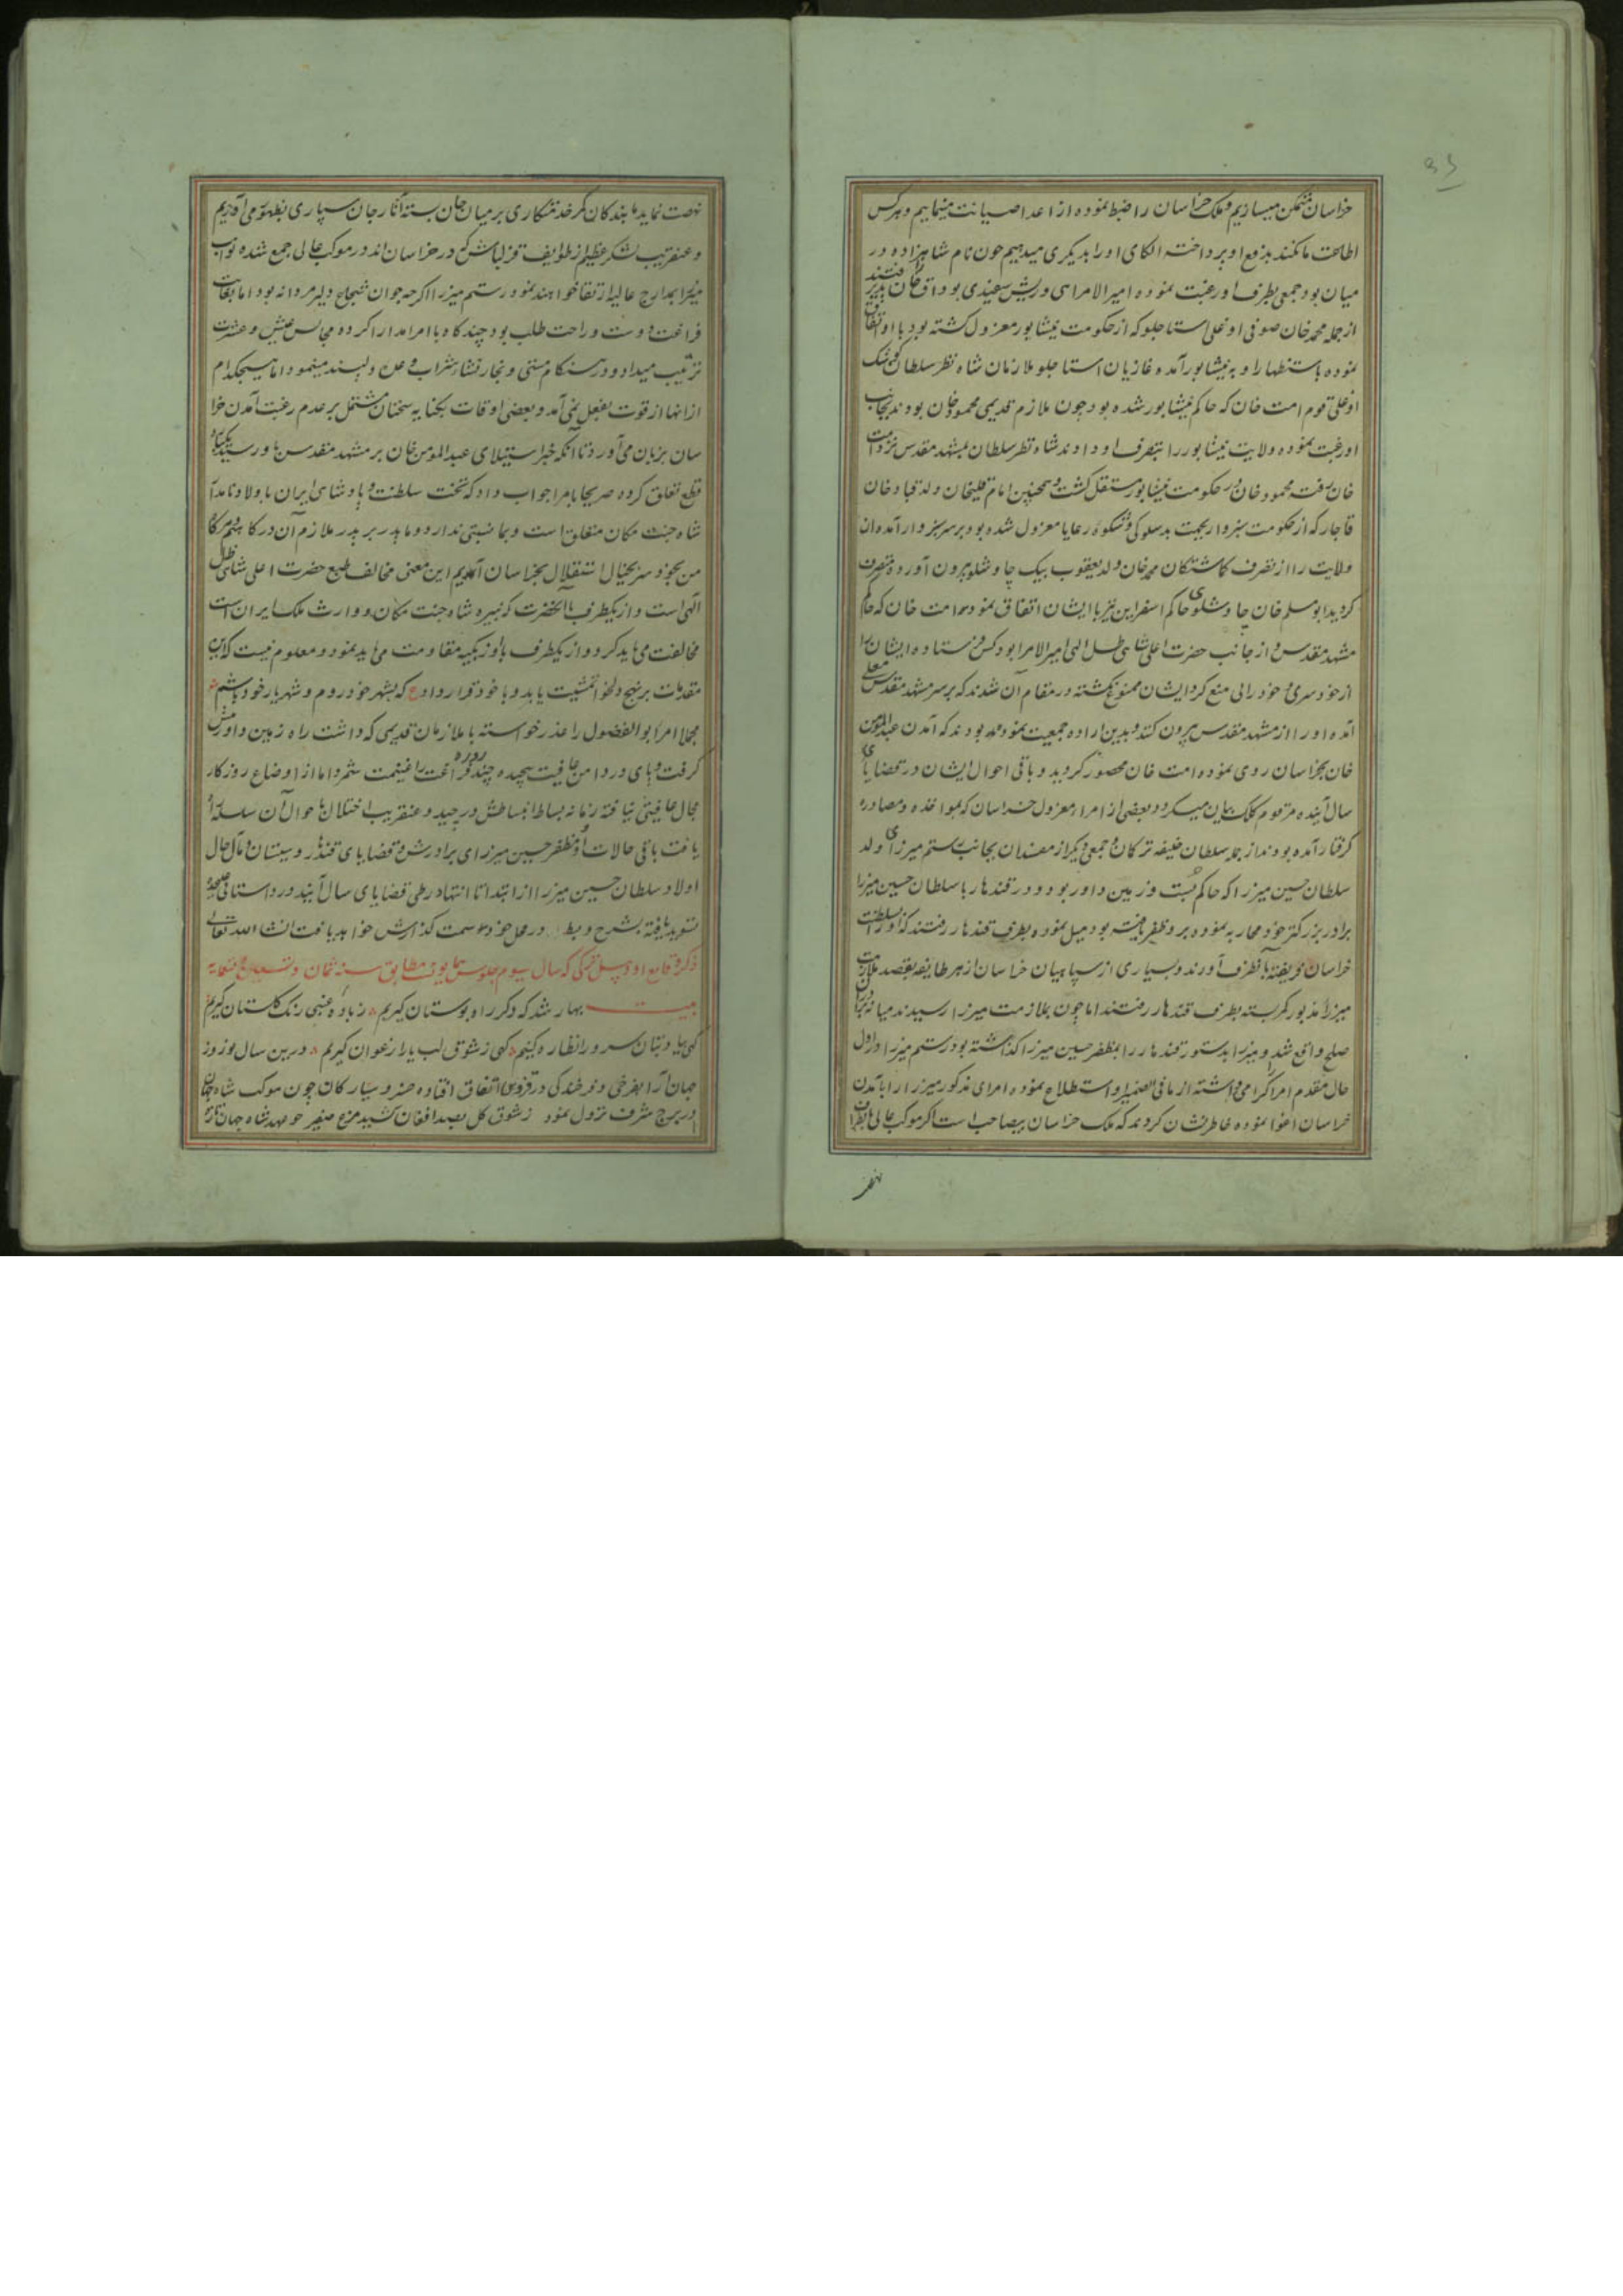 خراسان متمکن میسازیم و ملک خراسان را ضبط نموده از اعدا صیانت مینماییم و هر کس
اطاعت ما نکند بدفع او پرداخته الکای او را بدیگری میدهیم چون نام شاهزاده در
میان بود جمعی بطرف او رغبت نموده امیر الامرایی و ریش سفیدی بوداق خان پذیرفتند
از جمله محمد خان صوفی اوغلی استاجلو که از حکومت نیشابور معزول کشته بود با او اتفاق
نموده باستظهار او به نیشابور آمده غازیان استاجلو ملازمان شاه نظر سلطان
اوغلی قوم امت خان که حاکم نیشابور شده بود چون ملازم قدیمی محمود خان بودند بجانب
او رغبت نموده ولایت نیشابور را بتصرف او دادند شاه نظر سلطان بمشهد مقدس نزد امت
خان رفت محمود خان در حکومت نیشابور مستقل کشت و همچنین امام قلیخان ولد قباد خان
قاجار که از حکومت سبزوار بجهت بدسلوکی و شکوه رعایا معزول شده بود بر سر سبزوار آمده ان
ولایت را از تصرف کماشتکان محمد خان ولد یعقوب بیک چاوشلو بیرون آورده متصرف
کردید ابو مسلم خان چاوشلوی حاکم اسفراین نیز با ایشان اتفاق نمود امت خان که حاکم
مشهد مقدس و از جانب حضرت اعلی شاهی ظل الهی امیر الامرا بود کس فرستاده ایشان را
از خودسری و خودرایی منع کرد ایشان ممنوع نکشته در مقام آن شدند که بر سر مشهد مقدس معلی
آمده او را از مشهد مقدس بیرون کنند و بدین اراده جمعیت نموده بودند که آمدن عبدالمومن
خان بخراسان روی نموده امت خان محصور کردید و باقی احوال ایشان در قضایای
سال آینده مرقوم کلک بیان میکردد و بعضی از امراء معزول خراسان که بمواخذه و مصادره
کرفتار آمده بودند از جمله سلطان خلیفه ترکان و جمعی دیکر از مفسدان بجانب رستم میرزای ولد
سلطان حسین میرزا که حاکم بست و زمین داور بود و در قندهار با سلطان حسین میرزا
برادر بزرکتر خود محاربه نموده بر و ظفر یافته بود میل نموده بطرف قندهار رفتند که او را بسلطنت
خراسان فریفته بآنطرف آورند و بسیاری از سپاهیان خراسان از هر طایفه بقصد ملازمت
میرزا مذبور کمر بسته بطرف قندهار رفتند اما چون بملازمت میرزا رسیدند میانه برادران
صلح واقع شد و میرزا بدستور قندهار را بمظفر حسین میرزا کذاشته بود رستم میرزا در اول
حال مقدم امرا کرامی داشته از ما فی الضمیر او استطلاع نموده امرای مذکور میرزا را بآمدن
خراسان اغوا نموده خاطرنشان کردند که ملک خراسان بیصاحب است اکر موکب عالی بانطرف
نهضت
نهضت نماید ما بندکان کمر خدمتکاری بر میان جان بسته آثار جان سپاری بظهور می آوریم
و عنقریب لشکر عظیم از طوایف قزلباش که در خراسان اند در موکب عالی جمع شده نواب
میرزا بمدارج عالیه ارتقا خواهند نمود رستم میرزا اکرچه جوان شجاع دلیر مردانه بود اما بغایت
فراغت دوست و راحت طلب بود چند کاه با امرا مدارا کرده مجالس عیش و عشرت
ترتیب میداد و در هنکام مستی و بخار نشاء شراب وعده دلپسند مینمود اما هیچکدام
از انها از قوت بفعل نمی آمد و بعضی اوقات بکنایه سخنان مشتمل بر عدم رغبت آمدن خرا
سان بزبان می آورد تا آنکه خبر استیلای عبدالمومن خان بر مشهد مقدس باو رسید یکباره
قطع تعلق کرده صریحا بامرا جواب داد که تخت سلطنت و پادشاهی ایران باولاد نامدار
شاه جنت مکان متعلق است و بما نسبتی ندارد و ما پدر بر پدر ملازم آن درکاهیم هر کاه
من بخود سر بخیال استقلال بخراسان آئیم این معنی مخالف طبع حضرت اعلی شاهی ظل
آلهی است و از یکطرف با آنحضرت که نبیره شاه جنت مکان و وارث ملک ایران است
مخالفت می باید کرد و از یکطرف با اوزبکیه مقاومت می باید نمود و معلوم نیست که این
مقدمات بر نهج دلخواه تمشیت یابد و با خود قرار داد ع که بشهر خود روم و شهریار خود باشم
مجملا امرا ابو الفضول را عذر خواسته با ملازمان قدیمی که داشت راه زمین داور پیش
کرفت و پای در دامن عافیت پیچیده چند روزه فراغت را غنیمت شمرد اما از اوضاع روزکار
مجال عافیتی نیافته زمانه بساط انبساطش در چید و عنقریب اختلال باحوال آن سلسله راه
یافت باقی حالات او و مظفر حسین میرزای برادرش و قضایای قندهار و سیستان و مآل حال
اولاد سلطان حسین میرزا از ابتدا تا انتها در طی قضایای سال آینده در داستانی علیحده
تسوید یافته بشرح و بسط در محل خود سمت کذارش خواهد یافت انشاء الله تعالی
ذکر وقایع اودئیل ترکی که سال سیوم جلوس همایونست مطابق سنه ثمان و تسعین و تسعمایه
بیت بهار شد که دکر راه بوستان کیریم زباده عنبی رنک کلستان کیریم
کهی بیاد بتان سرو را نظاره کنیم کهی ز شوق لب یار ارغوان کیریم درین سال نوروز
جهان آرا بفرخی و فرخندکی در قزوین اتفاق افتاده خسرو سیارکان چون موکب شاه جهان
در برج شرف نزول نمود ز شوق کل بصد افغان کشید مرغ صفیر چو مهد شاه جهان